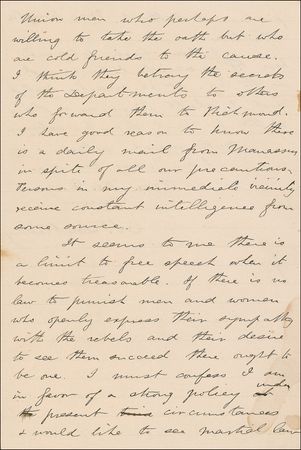 Union men who perhaps are
willing to take the oath but who
are cold friends to the cause.
I think they betray the secrets
of the Departments to others
who forward them to Richmond.
I have good reason to know there
is a daily mail from Manassas
in spite of all our precautions.
Persons in my immediate vicinity
receive constant intelligence from
some source.
It seems to me there is
a limit to free speech when it
becomes treasonable. If there is no
law to punish men and women
who openly express their sympathy
with the rebels and their desire
to see them succeed there ought to
be one. I must confess I am
in favor of a strong policy under
the present circumstances
& would like to see martial law